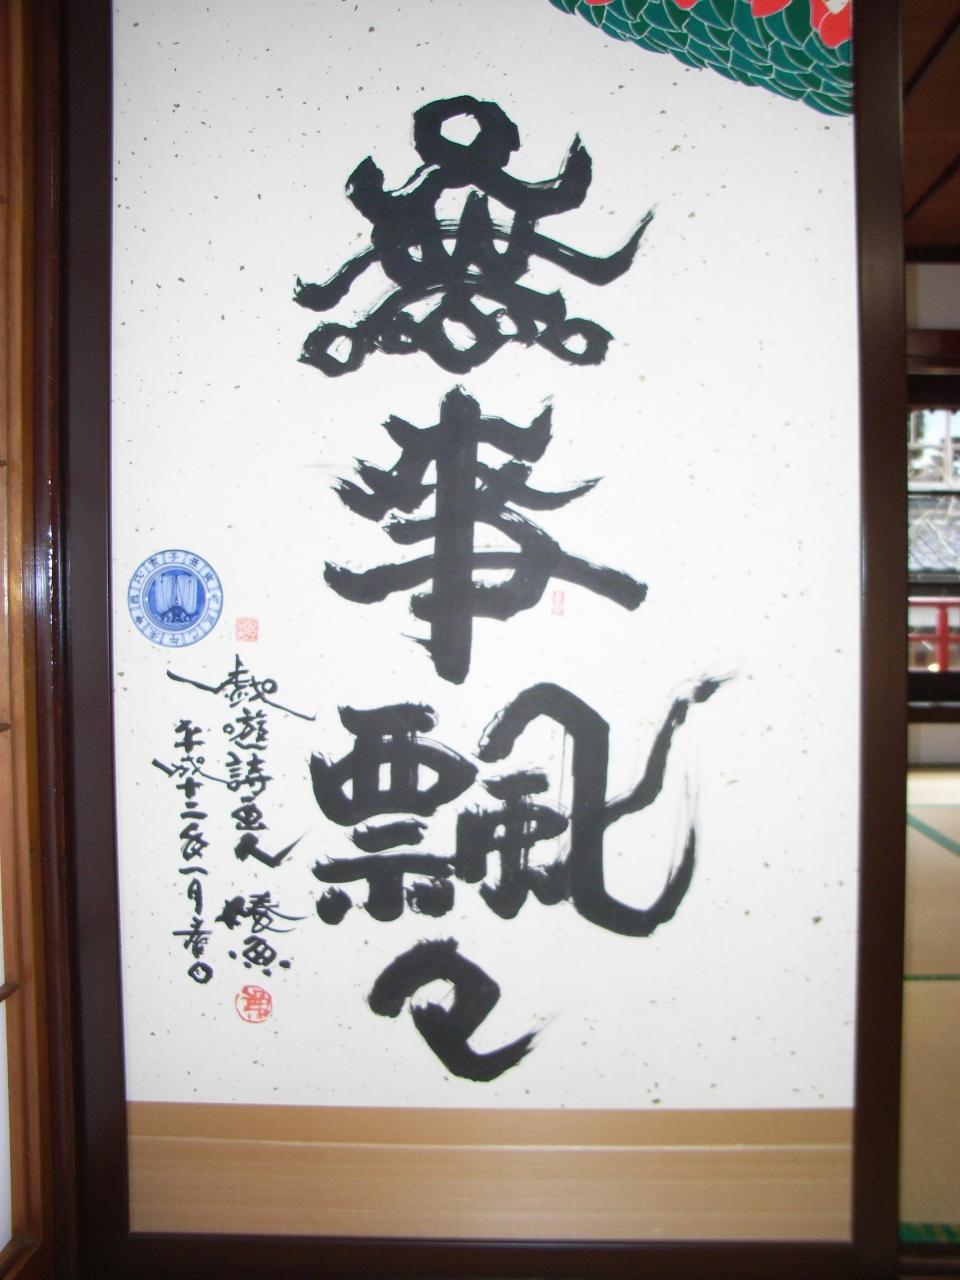 無事飄々
戯遊詩画人 棲魚
平成十二年一月春日